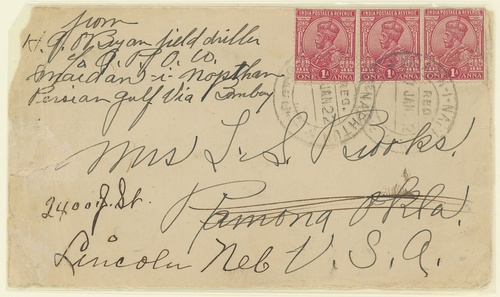 from
H. G. O'Ryan field driller
℅ A. P. O. Co.
Maidan-i-Nopthan
Persian gulf Via Bombay
INDIA POSTAGE & REVENUE INDIA POSTAGE & REVENUE INDIA POSTAGE & REVENUE
1A 1A 1A
ONE ANNA ONE ANNA ONE ANNA
REG.
JAN. 2
Mrs L. S. Rooks.
2400 J. St.
Ramona Okla.
Lincoln Neb U. S. A.